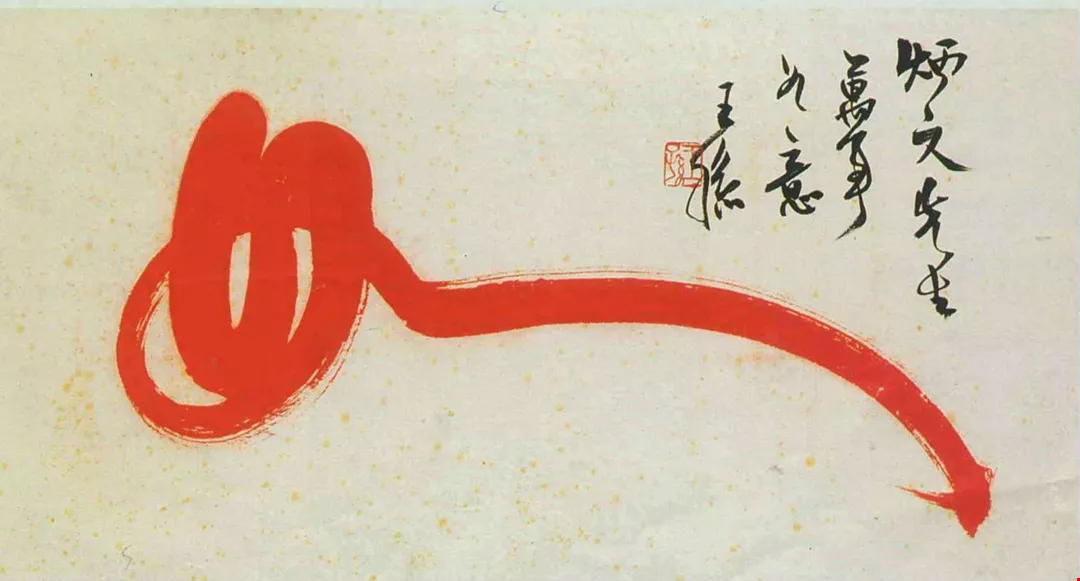 炳文先生
萬事
如意
王